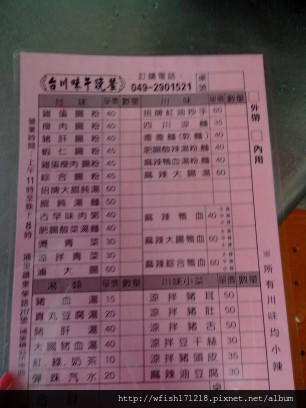 台川味干燒釜
訂購電話：
049-2901521
桌號
外帶
內用
台味 單價 數量
雞蛋腸粉 40
瘦肉腸粉 40
豬肝腸粉 40
蝦仁腸粉 50
雞蛋瘦肉腸粉 50
綜合腸粉 60
招牌大腸飩湯 60
餛飩湯麵 50
古早味肉粥 40
肥腸酸菜湯麵
燙青菜 30
涼拌青菜 30
滷大腸 60
湯類 單價 數量
豬血湯 15
貢丸豆腐湯 20
豬肝湯 40
大腸豬血湯 40
紅、綠、奶茶 10
彈珠汽水 20
川味 單價 數量
招牌紅油抄手 60
四川涼麵 35
肥腸酸辣粉湯麵 50
麻辣鴨血粉湯麵
麻辣大腸湯 60
麻辣鴨血 40
麻辣大腸鴨血
麻辣綜合鴨血
川味小菜 單價 數量
涼拌豬耳 50
涼拌豬肚 50
涼拌豬舌 50
涼拌豆干絲 30
涼拌豬頭皮 35
麻辣油豆腐 30
※所有川味均小辣
營業時間：上午11時至晚上8時
http://wfish171218.pixnet.net/album